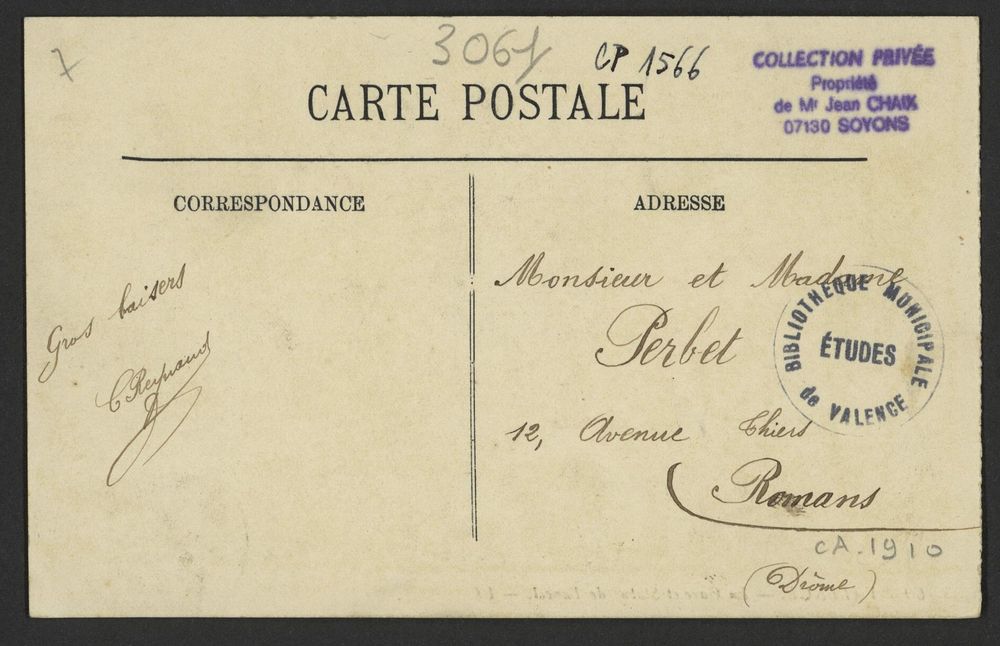 7
3061
CP 1566
COLLECTION PRIVÉE
Propriété
de Mr Jean CHAIX
07130 SOYONS
CARTE POSTALE
CORRESPONDANCE
ADRESSE
Gros baisers
C Reynaud
Monsieur et Madame
Perbet
12, Avenue Thiers
Romans
(Drôme)
BIBLIOTHEQUE MUNICIPALE
ÉTUDES
de VALENCE
CA. 1910